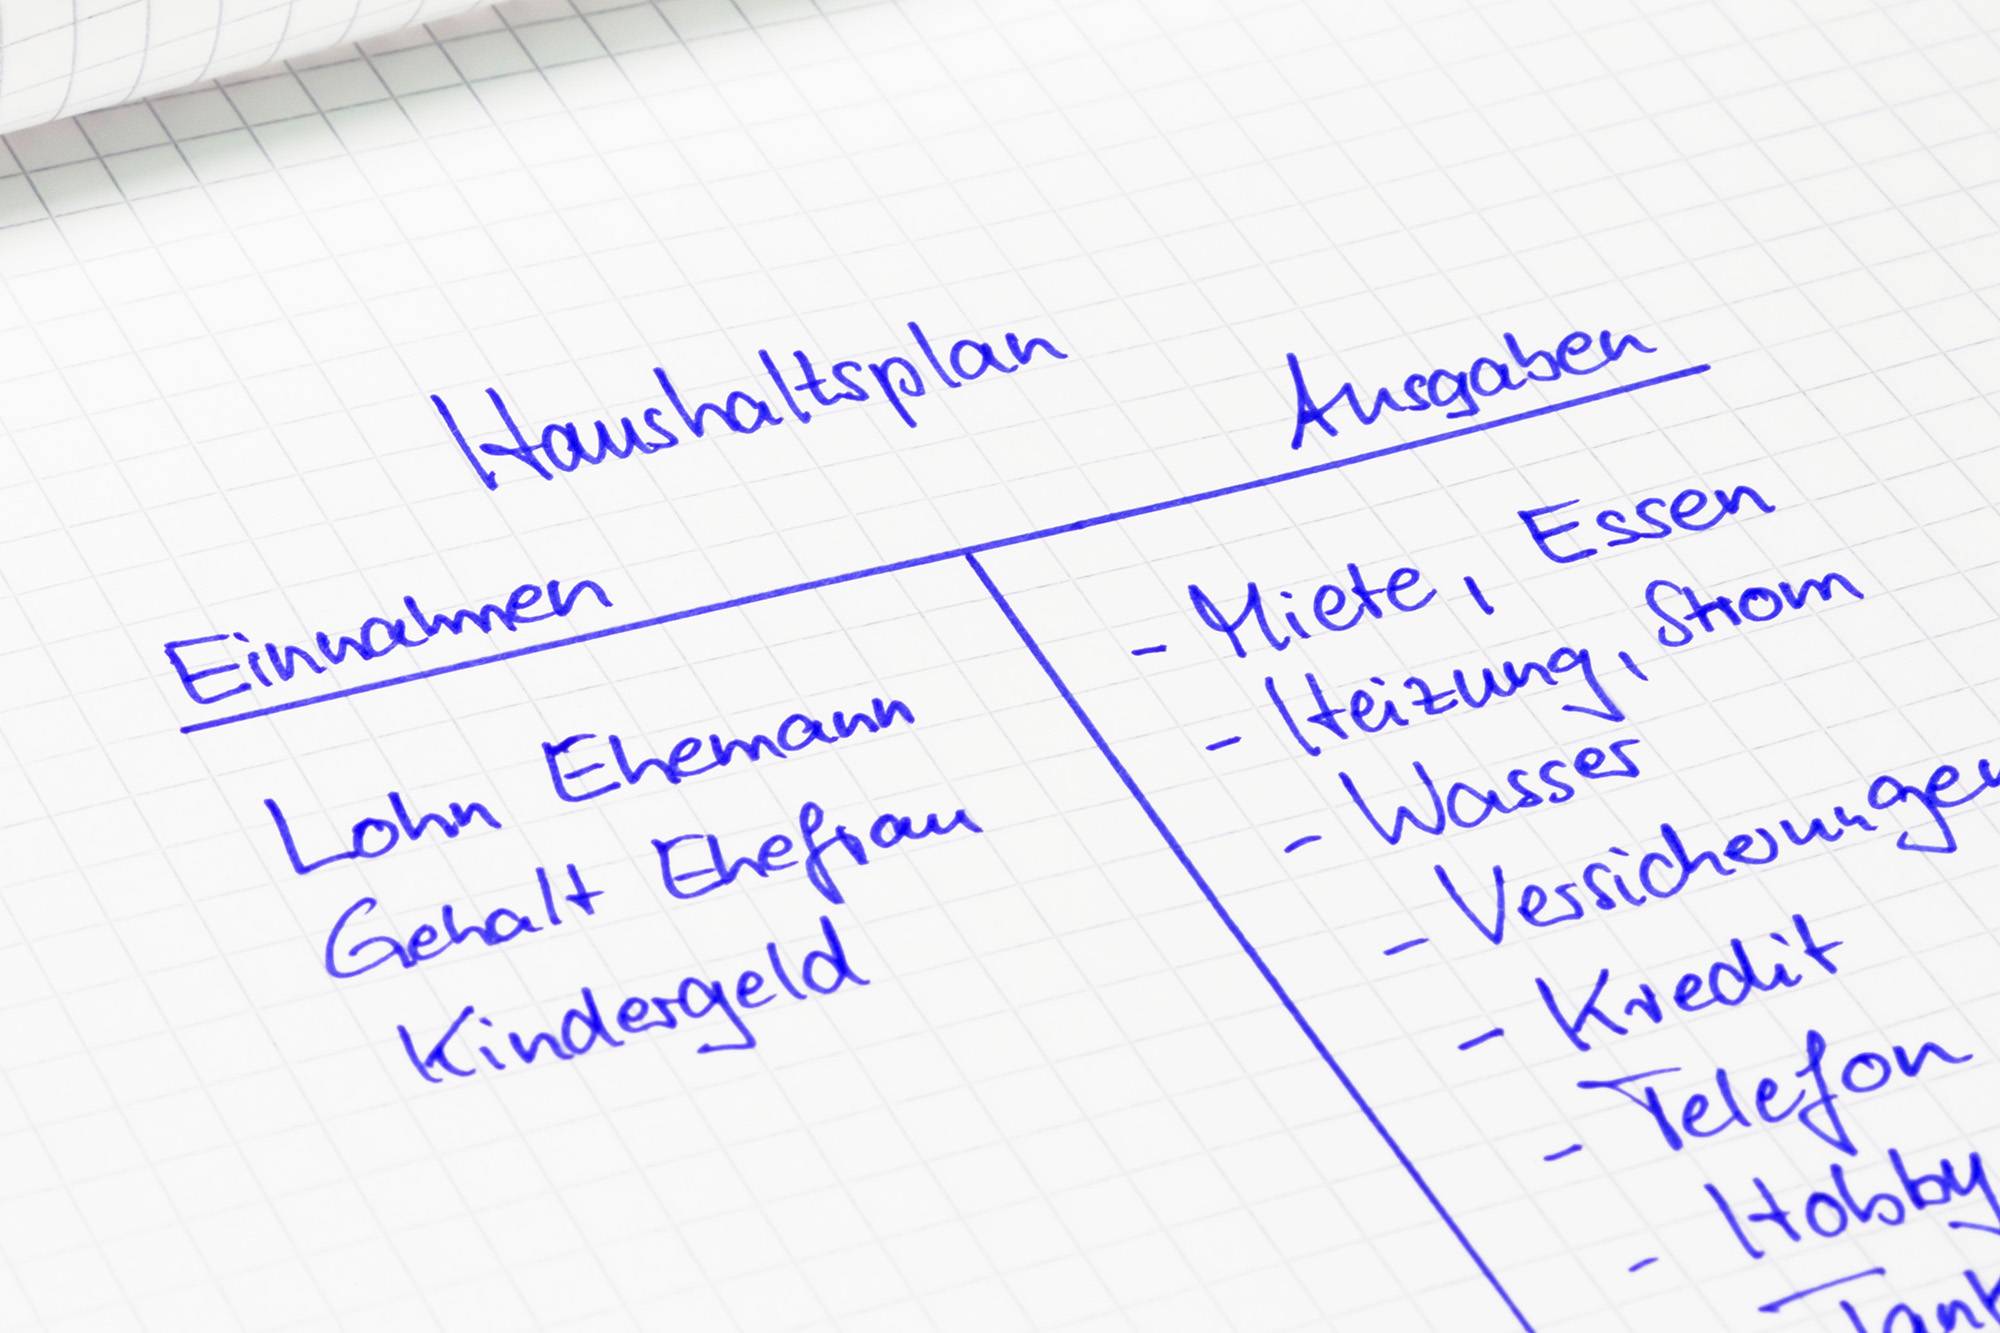 Haushaltsplan
Einnahmen
Lohn Ehemann
Gehalt Ehefrau
Kindergeld
Ausgaben
- Miete, Essen
- Heizung, Strom
- Wasser
- Versicherungen
- Kredit
- Telefon
- Hobby